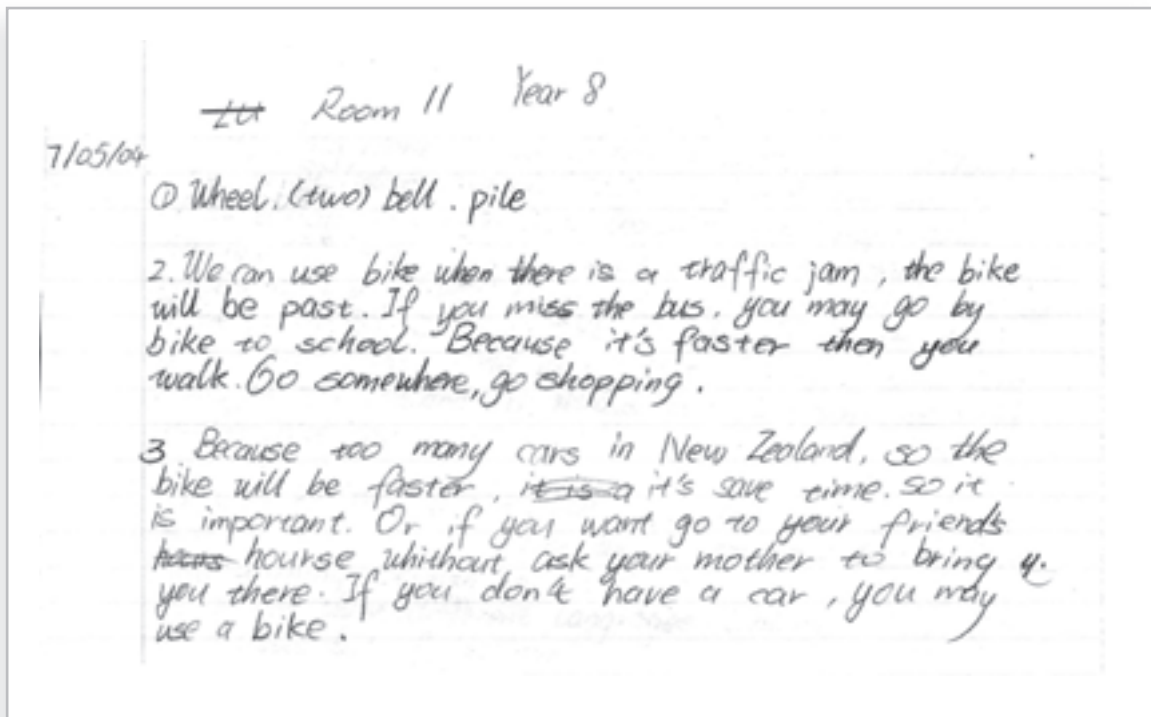 Room 11 Year 8
7/05/04
① Wheel. (two) bell. pile
2. We can use bike when there is a traffic jam, the bike
will be past. If you miss the bus. you may go by
bike to school. Because it's faster then you
walk. Go somewhere, go shopping.
3 Because too many cars in New Zealand, so the
bike will be faster, it's save time. so it
is important. Or if you want go to your friends
hourse whithout ask your mother to bring
you there. If you don't have a car, you may
use a bike.